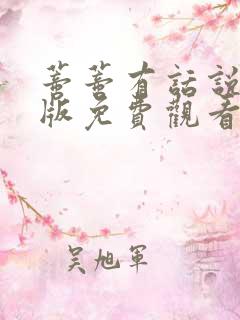 蕾蕾有話說
版免費觀看
吴旭軍